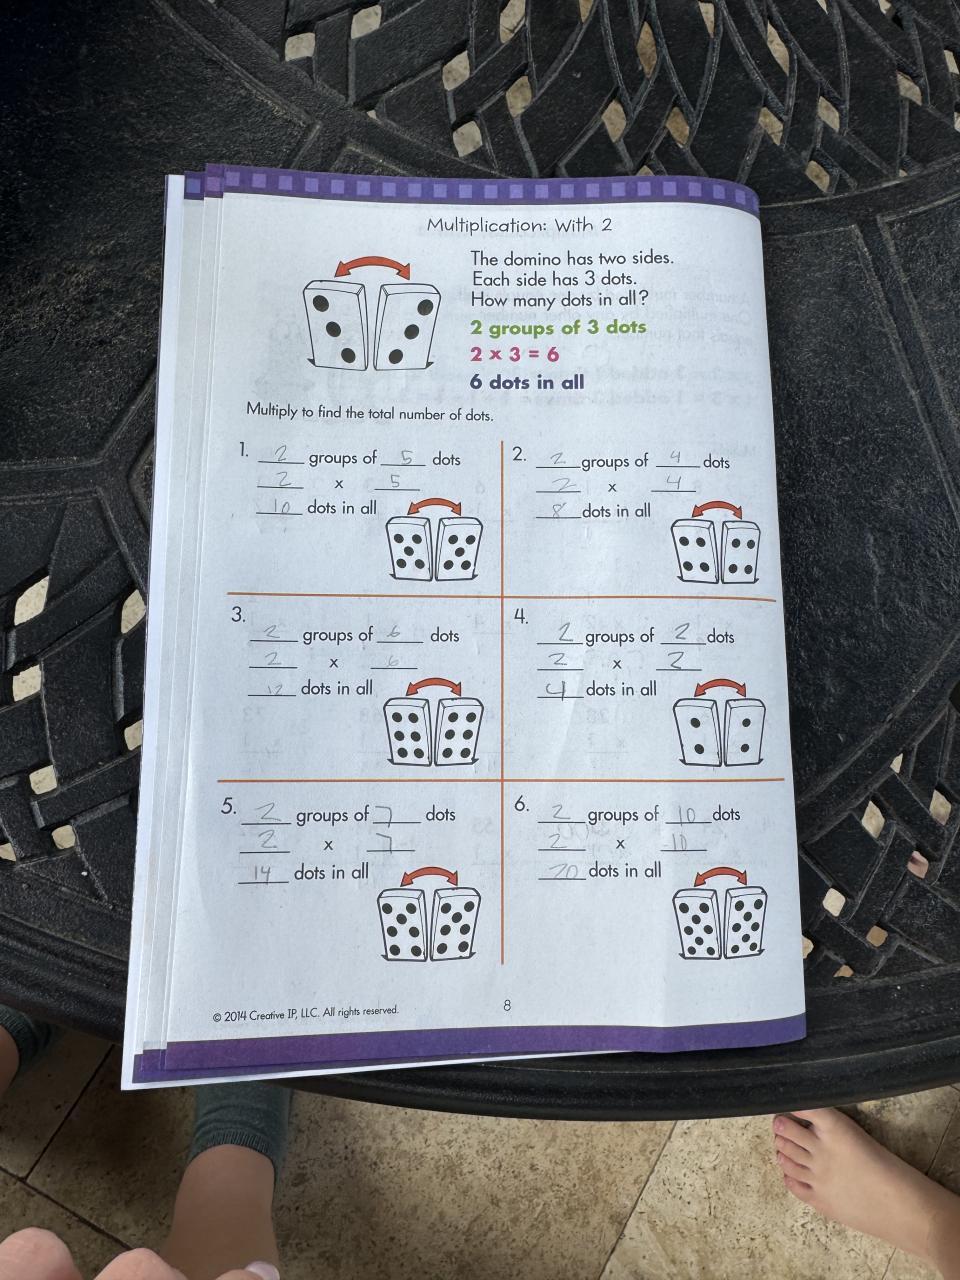 Multiplication: With 2
The domino has two sides.
Each side has 3 dots.
How many dots in all?
2 groups of 3 dots
2 x 3 = 6
6 dots in all
Multiply to find the total number of dots.
1. 2 groups of 5 dots
2 x 5
10 dots in all
2. 2 groups of 4 dots
2 x 4
8 dots in all
3. 2 groups of 6 dots
2 x 6
12 dots in all
4. 2 groups of 2 dots
2 x 2
4 dots in all
5. 2 groups of 7 dots
2 x 7
14 dots in all
6. 2 groups of 10 dots
2 x 10
20 dots in all
© 2014 Creative IP, LLC. All rights reserved.
8